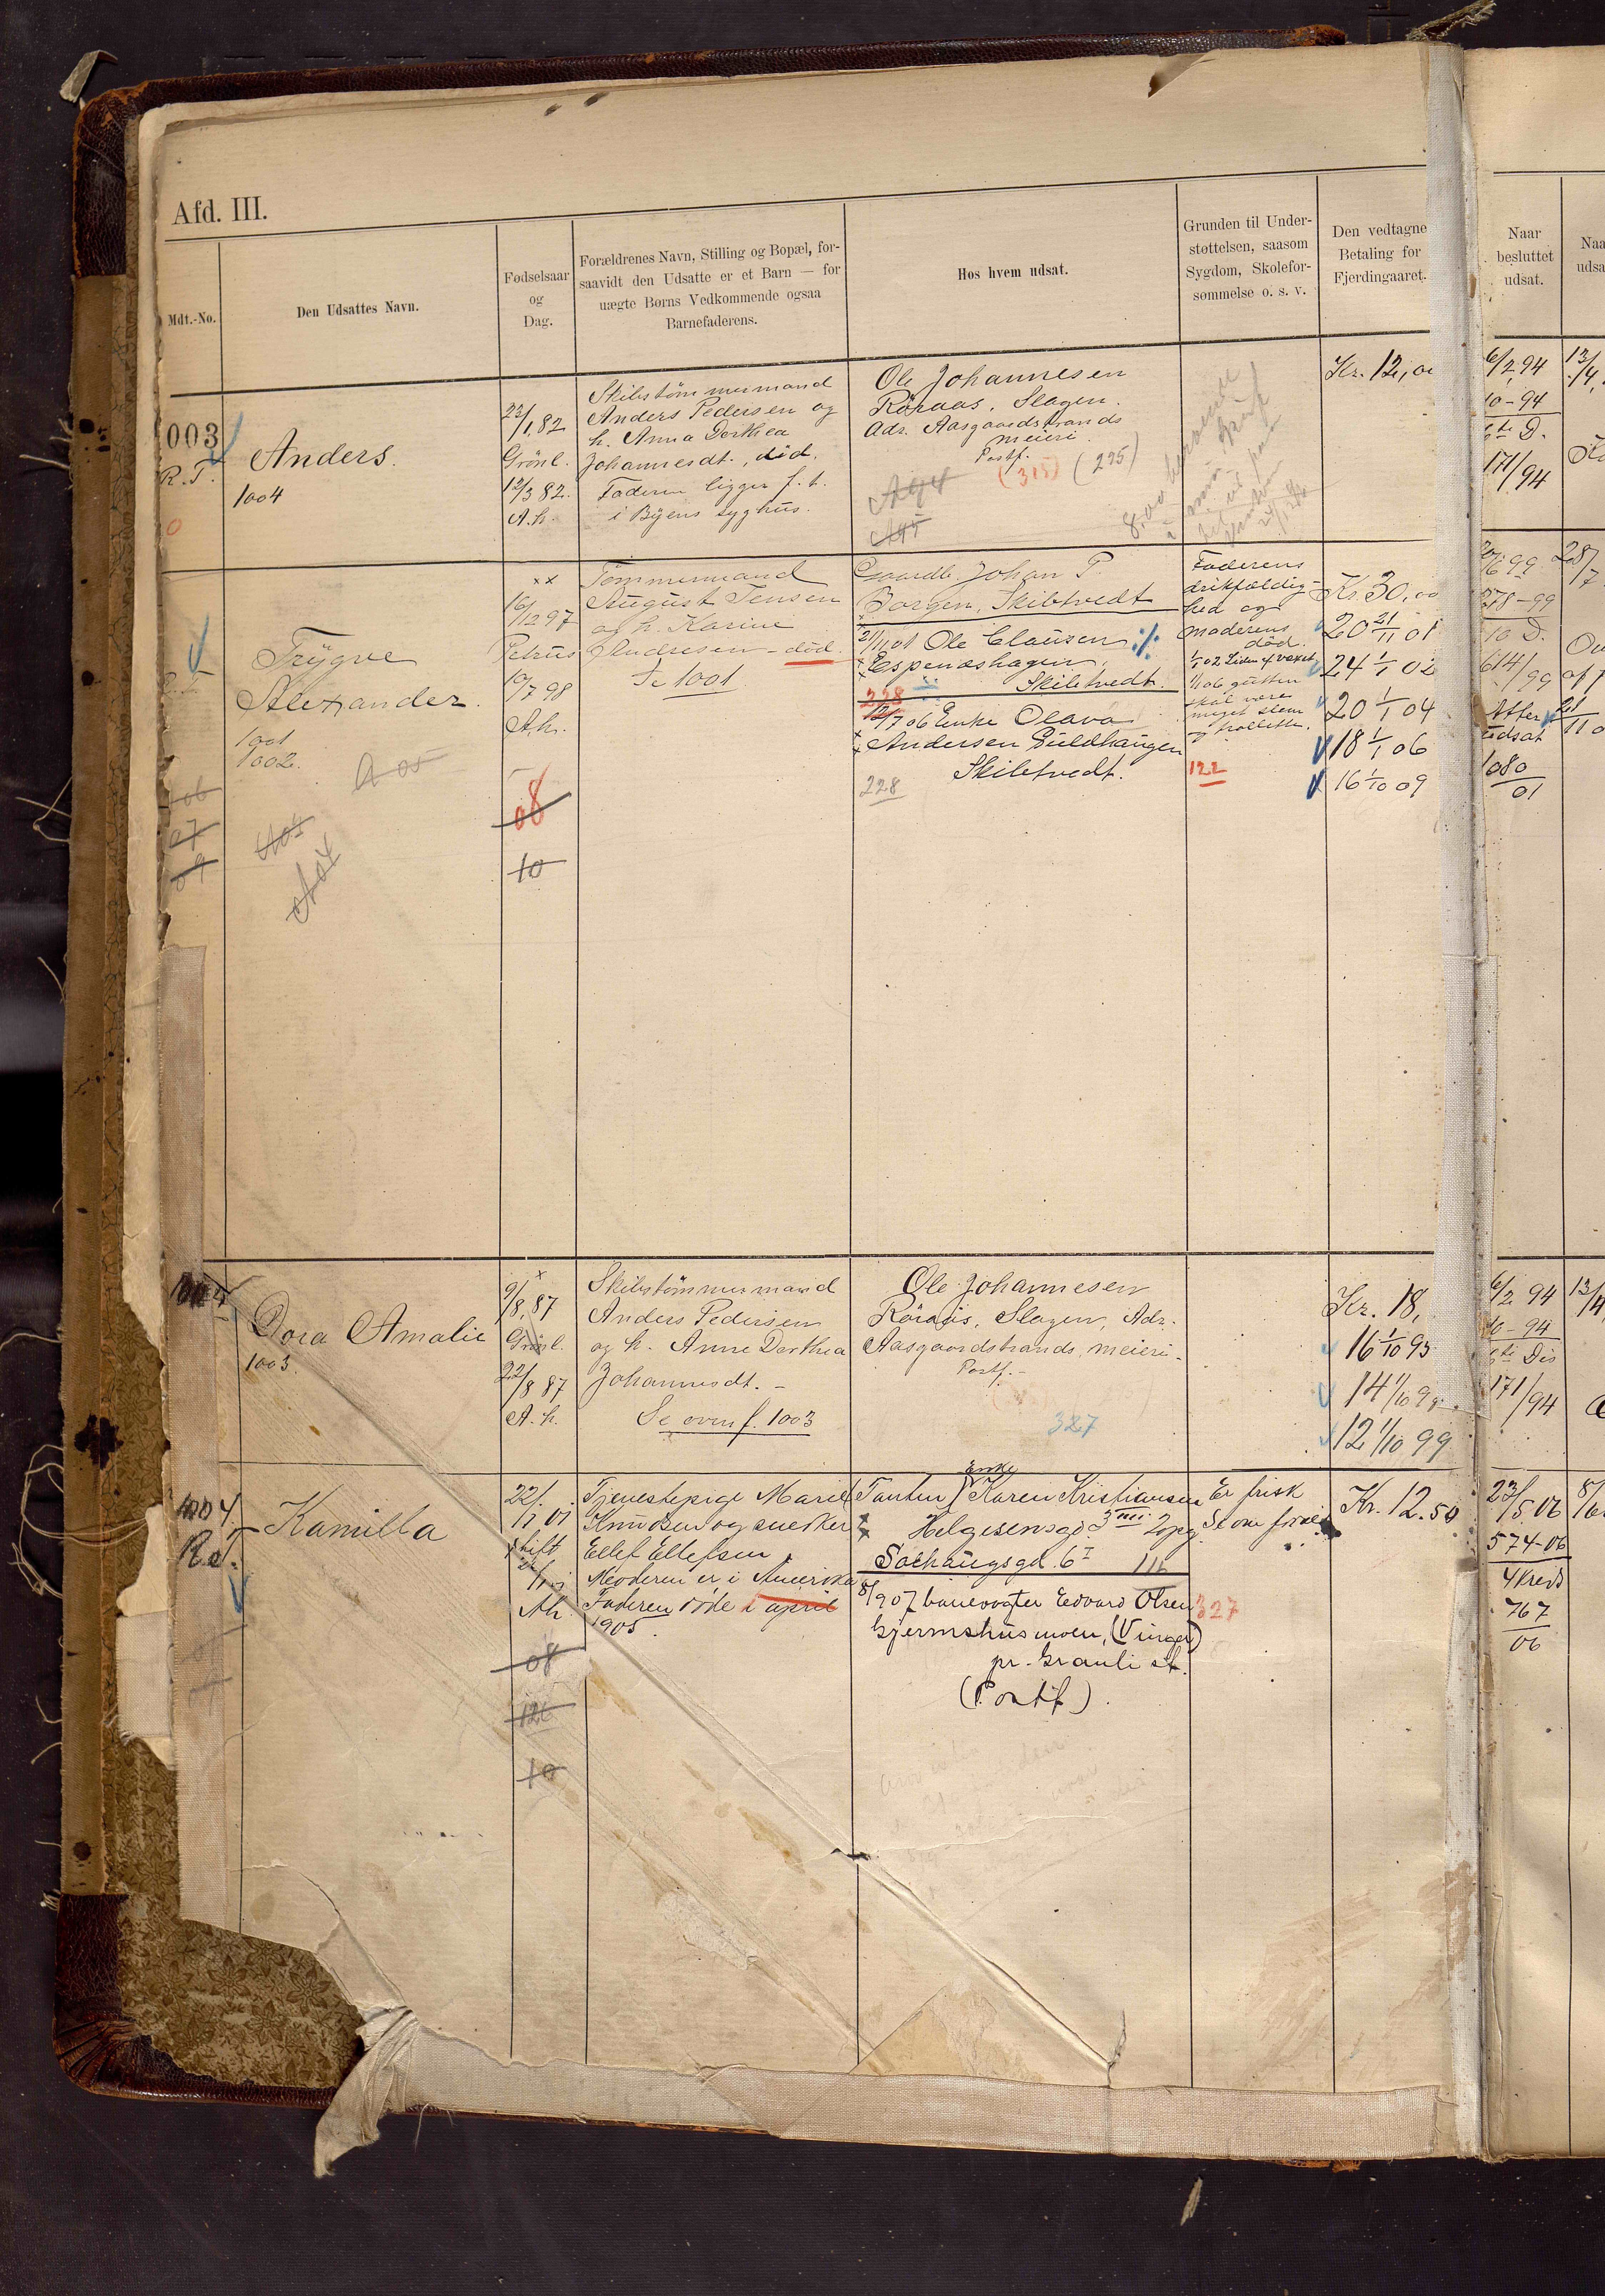 Afd. III.
Mdt.-No.
Den Udsattes Navn.
Fødselsaar
og
Dag.
Forældrenes Navn, Stilling og Bopæl, for-
saavidt den Udsatte er et Barn — for
uægte Børns Vedkommende ogsaa
Barnefaderens.
Hos hvem udsat.
Grunden til Under-
støttelsen, saasom
Sygdom, Skolefor-
sømmelse o. s. v.
Den vedtagne
Betaling for
Fjerdingaaret.
Naar
besluttet
udsat.
Naa
udsa
003
R. T.
Anders.
1004
22/1 82
Grönl.
12/3 82.
A. h.
Skibstömmermand
Anders Pedersen og
h. Anna Dorthea
Johannesdt., död.
Faderen ligger f. t.
i Byens syghus.
Ole Johannesen
Röraas, Slagen.
Adr. Aasgaardstrands
meieri
Postf.
(315) (295)
Kr. 12,00
6/2 94
10-94
6te D.
171/94
13/4
Trygve
Alexander.
1001
1002.
A 05
06
07
09
xx
16/12 97
Petrus
10/7 98
A. h.
08
10
Tömmermand
August Jensen
og h. Karine
Andresen - död.
Se 1001
Gaardb. Johan P.
Borgen, Skibtvedt
21/11 01 Ole Clausen
Espenæshagen,
Skibtvedt.
228
12/7 06 Enke Olava
Andersen Guldhaugen
Skibtvedt.
228
Faderens
drikfældig-
hed og
moderens
död.
1/1 02 Liden af vext
1/1 06 gutten
skal være
meget slem
122
Kr. 30,00
20 21/11 01
24 1/1 02
20 1/1 04
18 1/1 06
16 1/10 09
20/6 99
278-99
10 D.
614/99
Atter
udsat
1080
01
28/7
21/11 0
1004
Dora Amalie
1003
9/8 87
Grönl.
22/8 87
A. h.
Skibstömmermand
Anders Pedersen
og h. Anne Dorthea
Johannesdt. -
Se ovenf. 1003
Ole Johannesen
Röraas, Slagen, Adr.
Aasgaardstrands meieri.
Postf. -
327
Kr. 18,
16 1/10 95
14 1/10 98
12 1/10 99
6/2 94
10-94
6te Dis
171/94
13/4
1004
R.T.
Kamilla
22/1 01
Ah
08
126
10
Tjenestepige Marie
Knudsen og snedker
Ellef Ellefsen
Moderen er i Amerika
Faderen döde i april
1905.
Enke
Tanten Karen Kristiansen
Helgesensgd. 3 III 2opg
Sochaugsgd. 6 I
8/9 07 banevogter Edvard Olsen
Gjermshusmoen, (Vinger)
pr. Granli st.
(Postf).
327
Er frisk
Se om
Kr. 12.50
23/5 06
574-06
4 Kreds
767
06
8/6